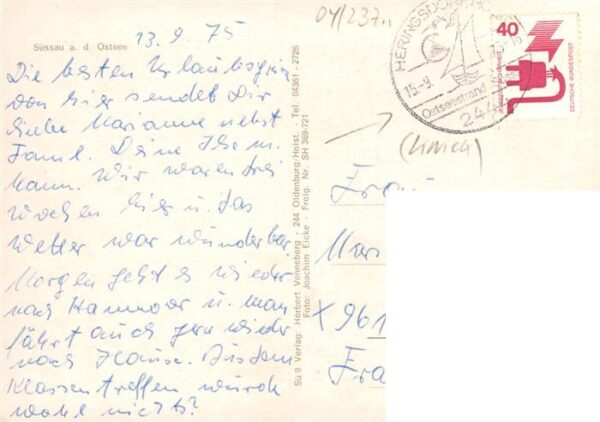 Süssau a. d. Ostsee
13.9.75
Die besten Urlaubsgrüße
von hier sendet Dir
liebe Marianne nebst
Famil. Deine Ilse u.
Mann. Wir waren drei
Wochen hier u. das
Wetter war wunderbar.
Morgen geht es wieder
nach Hannover u. man
fährt auch gern wieder
nach Hause. Aus dem
Klassentreffen wurde
wohl nichts?
Sü 9 Verlag: Herbert Venneberg - 244 Oldenburg/Holst. Tel. 04361 - 2726
Foto: Joachim Eicke · Freig. Nr. SH 369-721
04/237
HERINGSDORF
15.-9.
Ostseestrand
244
40
DEUTSCHE BUNDESPOST
Frau
Mari
X 961
Fra